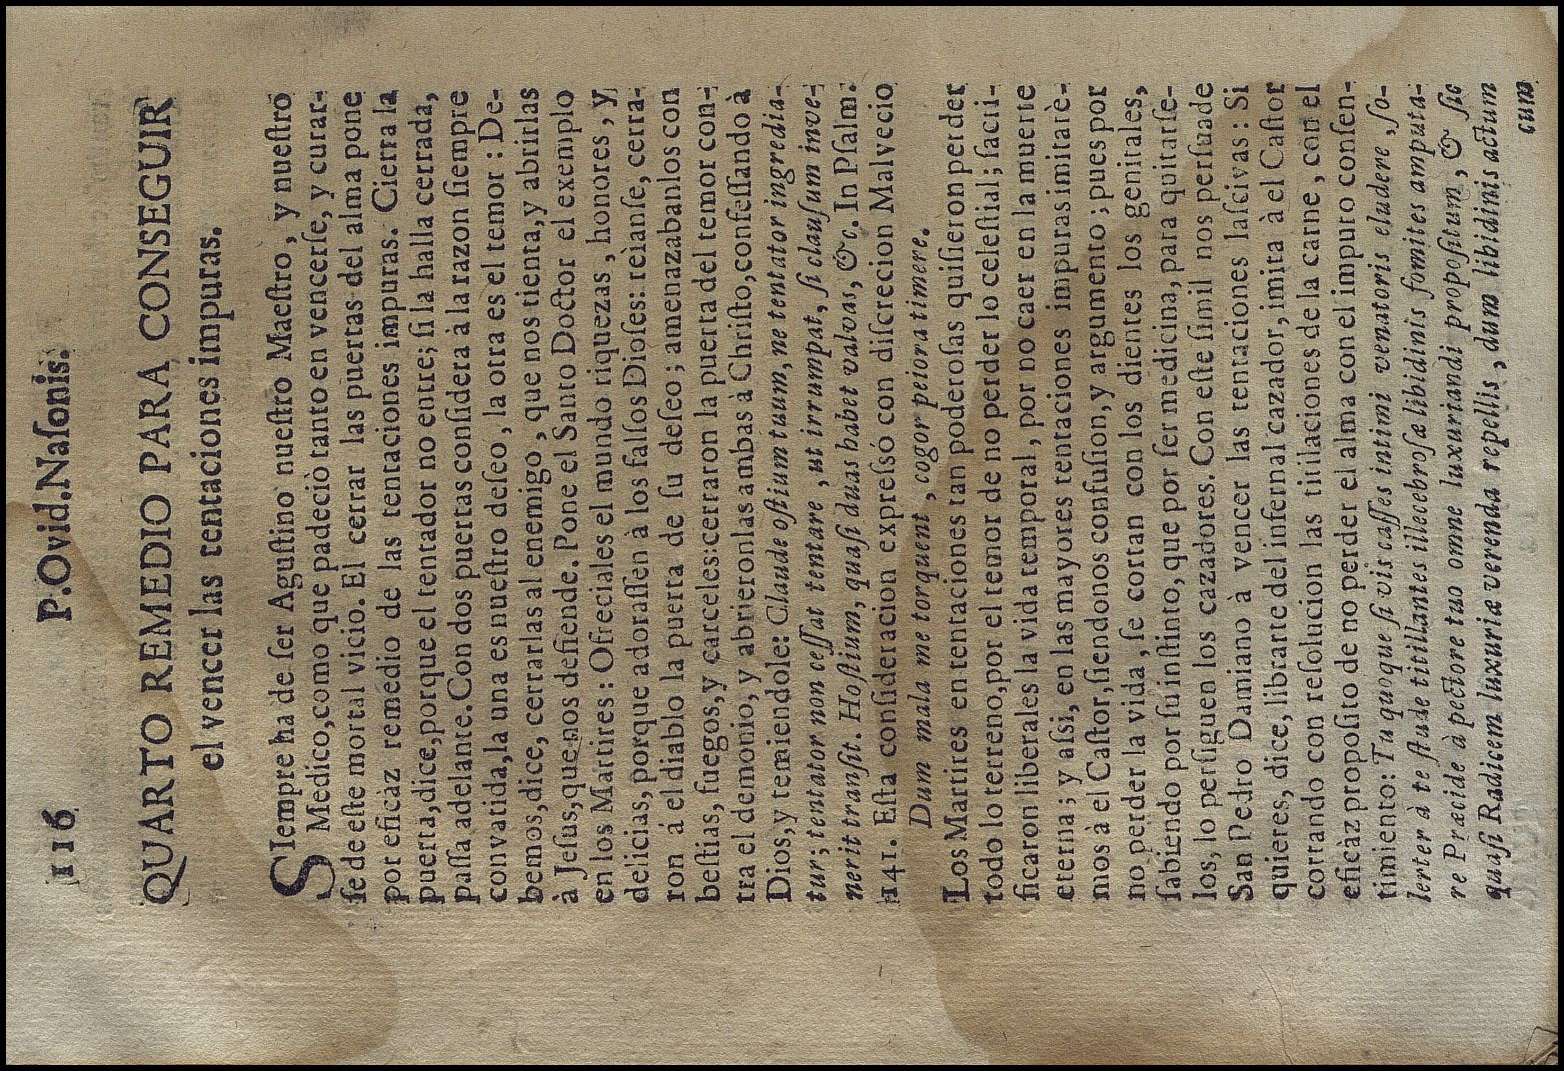 116 P.Ovid.Naſonis.
QUARTO REMEDIO PARA CONSEGUIR
el vencer las tentaciones impuras.
SIempre ha de ſer Aguſtino nueſtro Maeſtro, y nueſtro
Medico, como que padeciò tanto en vencerſe, y curar-
ſe de eſte mortal vicio. El cerrar las puertas del alma pone
por eficàz remedio de las tentaciones impuras. Cierra la
puerta, dice, porque el tentador no entre; ſi la halla cerrada,
paſſa adelante. Con dos puertas conſidera à la razon ſiempre
convatida, la una es nueſtro deſeo, la otra es el temor: De-
bemos, dice, cerrarlas al enemigo, que nos tienta, y abrirlas
à Jeſus, que nos defiende. Pone el Santo Doctor el exemplo
en los Martires: Ofrecial​es el mundo riquezas, honores, y
delicias, porque adoraſſen à los falſos Dioſes: rèianſe, cerra-
ron á el diablo la puerta de ſu deſeo; amenazabanlos con
beſtias, fuegos, y carceles: cerraron la puerta del temor con-
tra el demonio, y abrieronlas ambas à Chriſto, confeſſando à
Dios, y temiendole: Claude oſtium tuum, ne tentator ingredia-
tur; tentator non ceſſat tentare, ut irrumpat, ſi clauſum inve-
nerit tranſit. Hoſtium, quaſi duas habet valvas, &c. In Pſalm.
141. Eſta conſideracion expreſsó con diſcrecion Malvecio
Dum mala me torquent, cogor peiora timere.
Los Martires en tentaciones tan poderoſas quiſieron perder
todo lo terreno, por el temor de no perder lo celeſtial; ſacri-
ficaron liberales la vida temporal, por no caer en la muerte
eterna; y aſsi, en las mayores tentaciones impuras imitarè-
mos à el Caſtor, ſiendonos confuſion, y argumento; pues por
no perder la vida, ſe cortan con los dientes los genitales,
ſabiendo por ſu inſtinto, que por ſer medicina, para quitarſe-
los, lo perſiguen los cazadores. Con eſte ſimil nos perſuade
San Pedro Damiano à vencer las tentaciones laſcivas: Si
quieres, dice, librarte del infernal cazador, imita à el Caſtor
cortando con reſolucion las titilaciones de la carne, con el
eficàz propoſito de no perder el alma con el impuro conſen-
timiento: Tu quoque ſi vis caſſes intimi venatoris eludere, ſo-
lerter à te ſtude titillantes illecebroſæ libidinis fomites amputa-
re Præcide à pectore tuo omne luxuriandi propoſitum, & ſic
quaſi Radicem luxuriæ verenda repellis, dum libidinis actum
cum